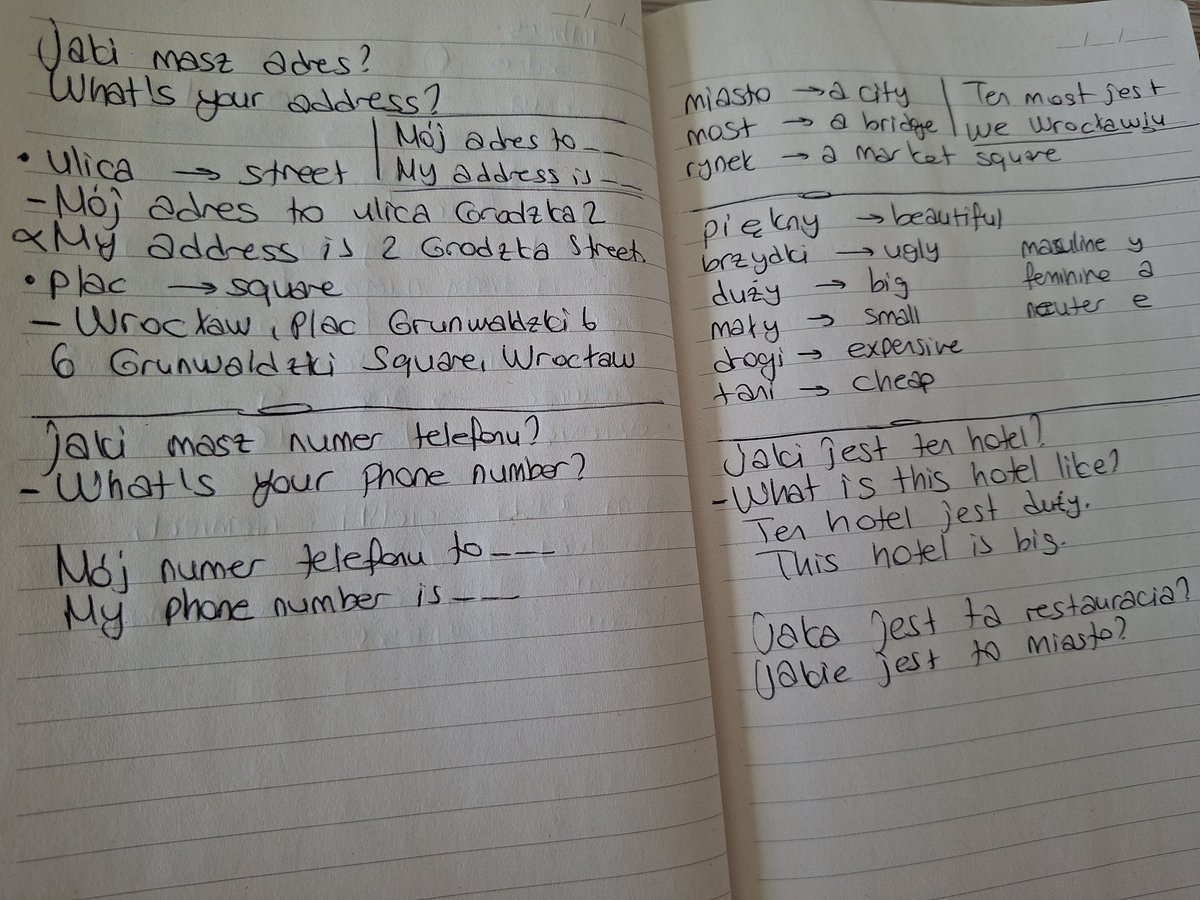 Jaki masz adres?
What's your address?
• ulica → street
Mój adres to __
My address is __
- Mój adres to ulica Grodzka 2
My address is 2 Grodzka Street.
• plac → square
- Wrocław, plac Grunwaldzki 6
6 Grunwaldzki Square, Wrocław
Jaki masz numer telefonu?
- What's your phone number?
Mój numer telefonu to ___
My phone number is ___
_/_/_
miasto → a city
most → a bridge
rynek → a market square
Ten most jest
we Wrocławiu
piękny → beautiful
brzydki → ugly
duży → big
mały → small
drogi → expensive
tani → cheap
masuline y
feminine a
neuter e
Jaki jest ten hotel?
- What is this hotel like?
Ten hotel jest duży.
This hotel is big.
Jaka jest ta restauracia?
Jakie jest to miasto?